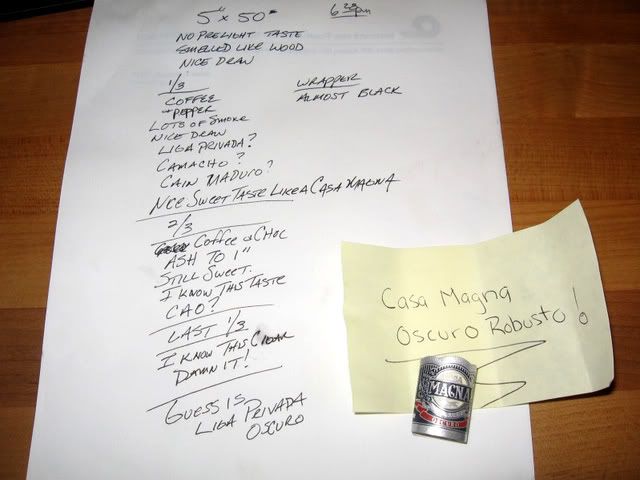 5" x 50"
6 28pm
NO PRELIGHT TASTE
SMELLED LIKE WOOD
NICE DRAW
1/3
WRAPPER
COFFEE
ALMOST BLACK
+ PEPPER
LOTS OF SMOKE
NICE DRAW
LIGA PRIVADA?
CAMACHO?
CAIN MADURO?
NICE SWEET TASTE LIKE A CASA MAGNA
2/3
COFFEE & CHOC
ASH TO 1"
STILL SWEET.
I KNOW THIS TASTE
CAO?
LAST 1/3
I KNOW THIS CIGAR
DAMN IT!
GUESS IS
LIGA PRIVADA
OSCURO
Casa Magna
Oscuro Robusto!
MAGNA
OSCURO